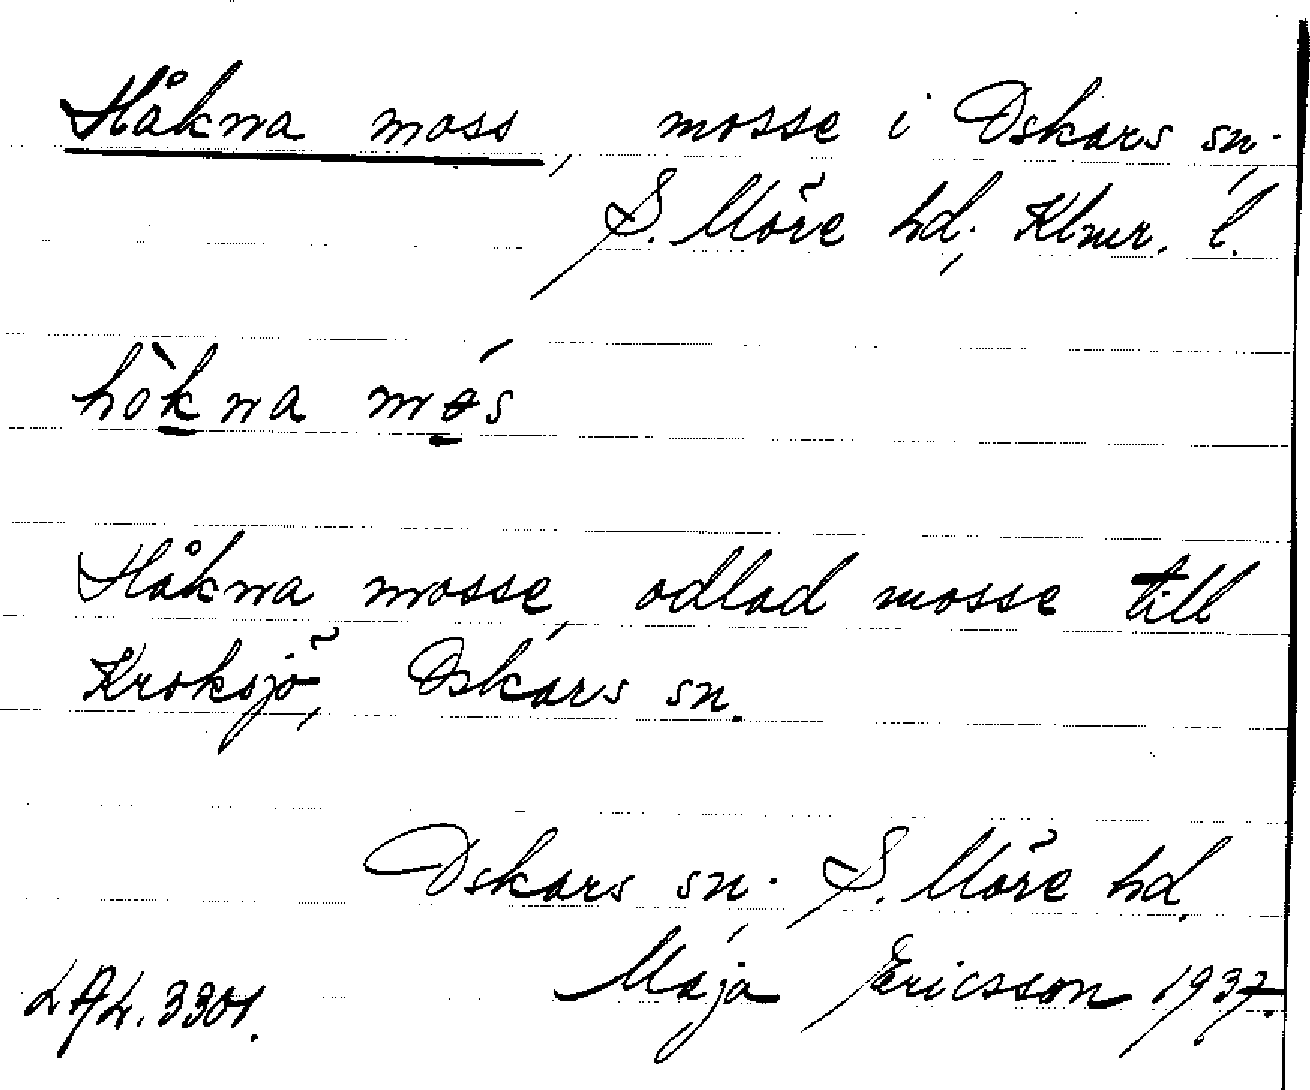 Håkna moss, mosse i Oskars sn.,
S. Möre hd., Klmr. l.
hò̱kna mǿ̱s
Håkna mosse, odlad mosse till
Kroksjö, Oskars sn.
Oskars sn., S. Möre hd.
LAL. 3301. Maja Ericsson 1937.